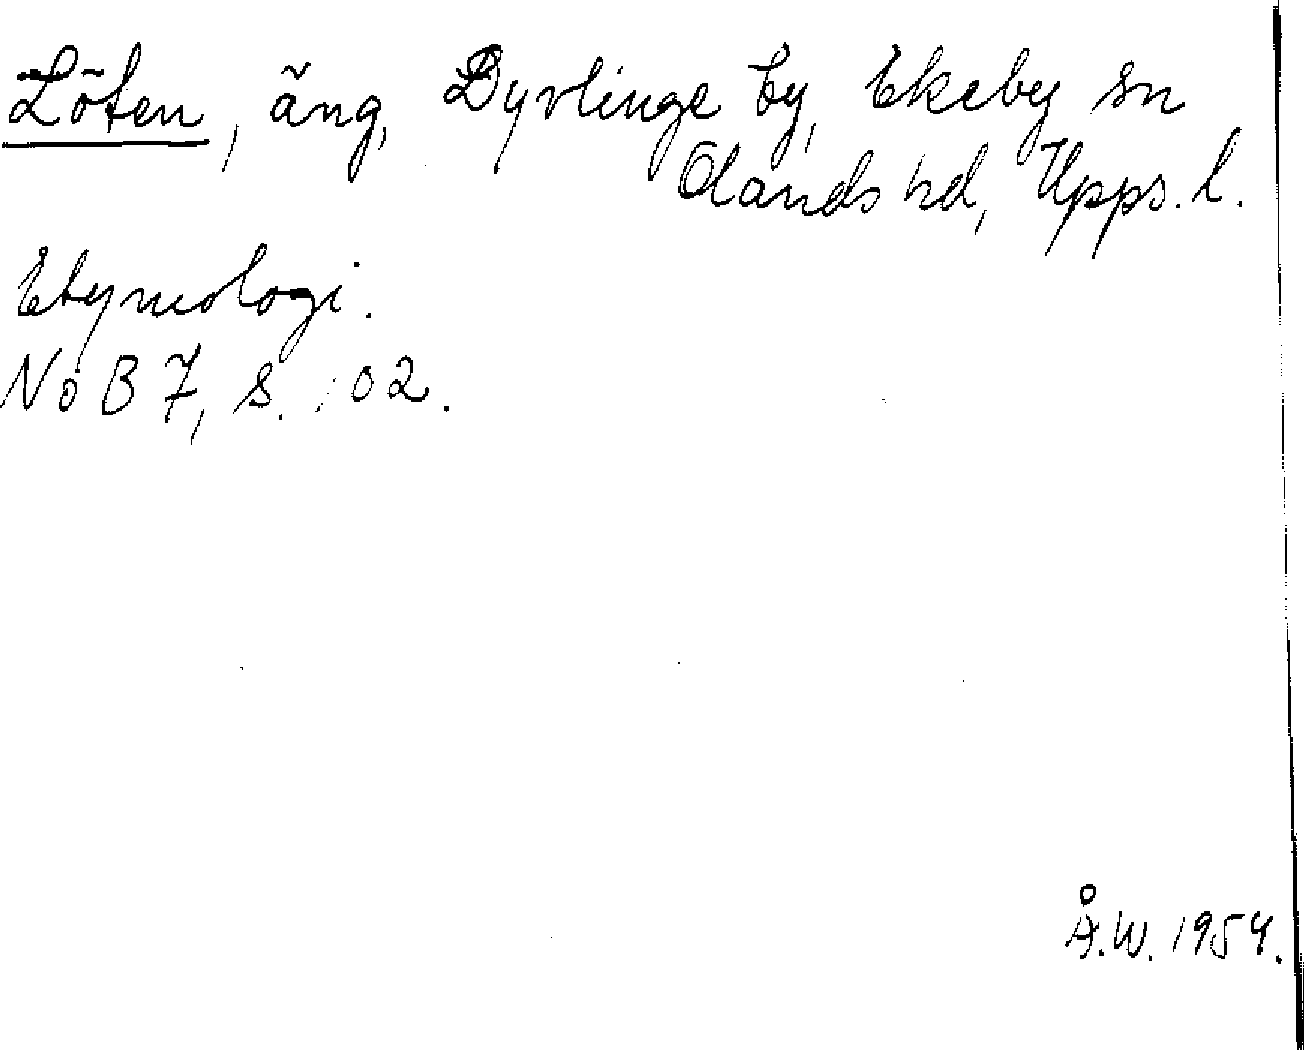 Löten, äng, Dyvlinge by, Ekeby sn
Olands hd, Upps. l.
Etymologi.
NoB 7, s. 102.
Å.W. 1954.